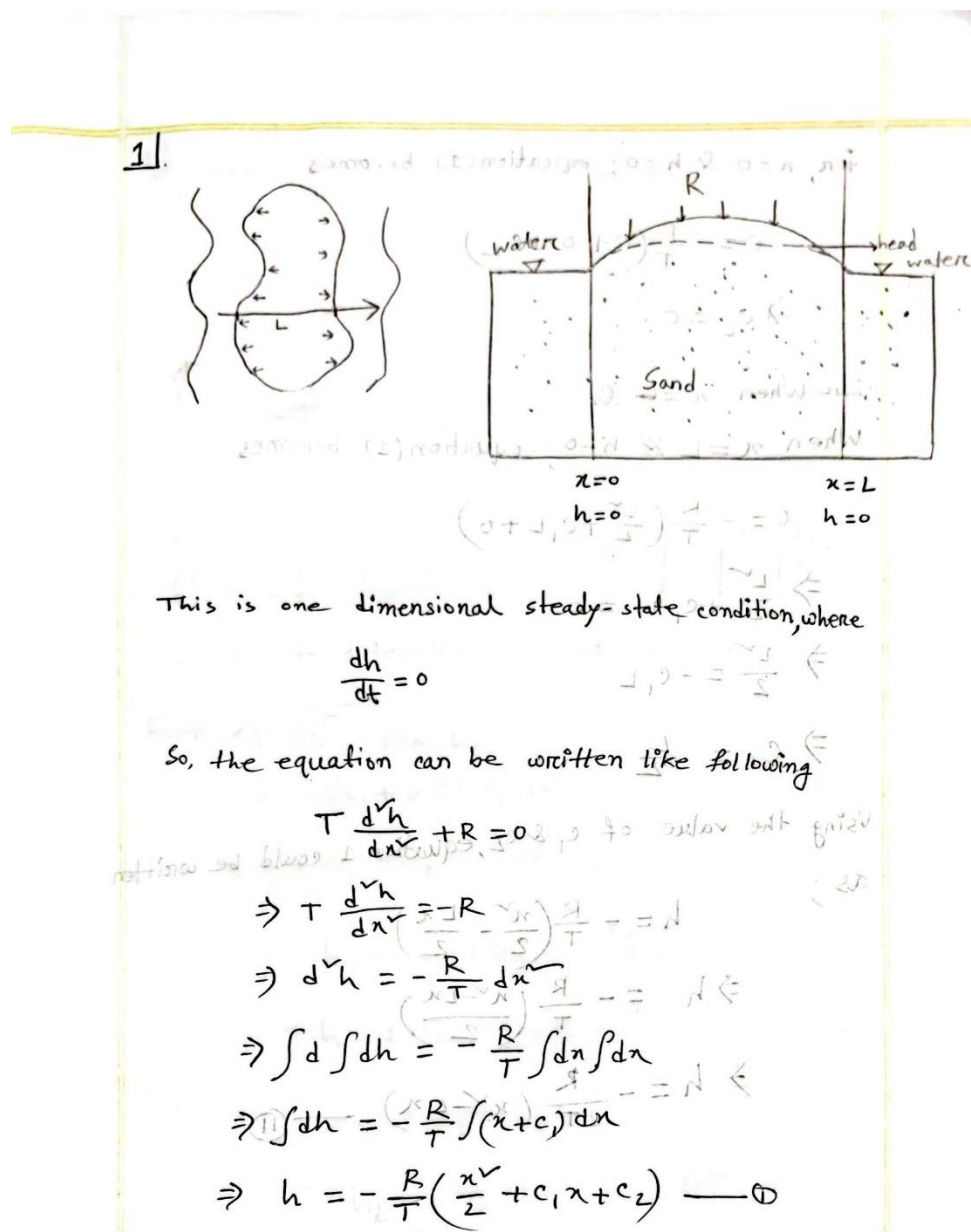 1.
R
water
head
water
L
Sand
x=0
x=L
h=0
h=0
This is one dimensional steady-state condition, where
dh/dt = 0
So, the equation can be written like following
T d²h/dx² + R = 0
⇒ T d²h/dx² = -R
⇒ d²h = - R/T dx²
⇒ ∫d ∫dh = - R/T ∫dx ∫dx
⇒ ∫dh = - R/T ∫(x+c₁) dx
⇒ h = - R/T (x²/2 + c₁x + c₂) —— ①